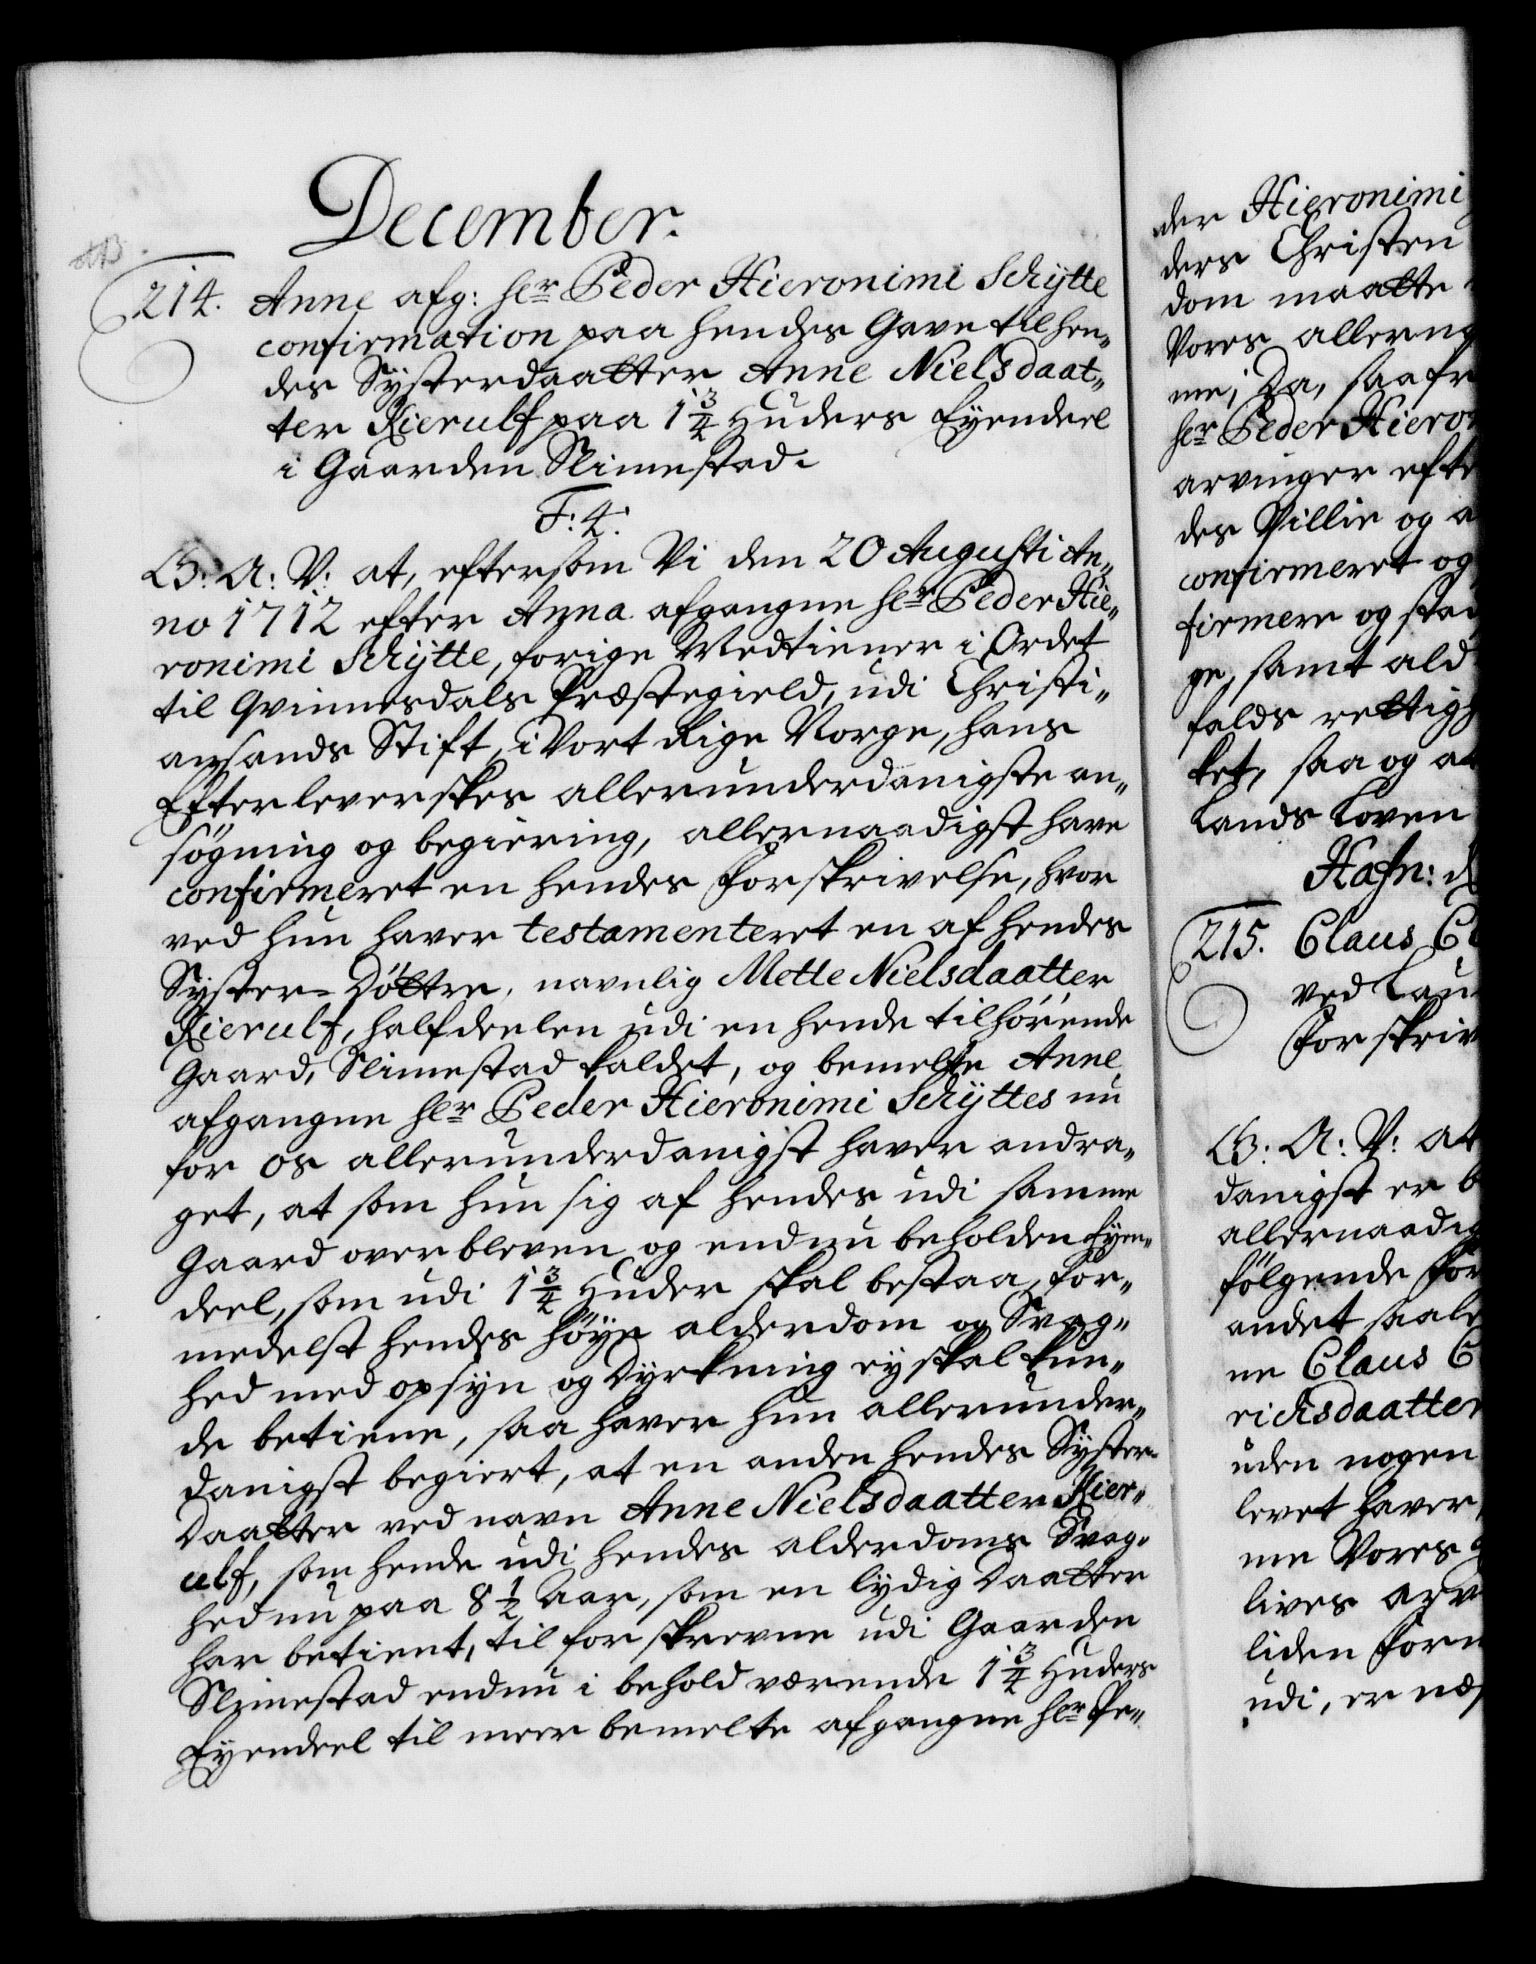 December.
214. Anne afg: hr Peder Hieronimi Schÿtte
confirmation paa hendes Gave til hen„
des Sÿsterdaatter Anne Nielsdaat„
ter Kierulf paa 1¾ Huders Eÿendeel
i Gaarden Slimestad.
F: 4.
G: A: V: at, eftersom Vi den 20 Augusti An„
no 1712 efter Anna afgangne hr Peder Hie„
ronimi Schÿtte, forige Medtiener i Ordet
til Qvinnesdals Præstegield, udi Christi„
ansands Stift, i Vort Rige Norge, hans
Efterleverskes allerunderdanigste an„
søgning og begiering, allernaadigst have
confirmeret en hendes Forskrivelse, hvor
ved hun haver testamenteret en af hendes
Sÿster-Døttre, navnlig Mette Nielsdaatter
Kierulf, halfdeelen udi en hende tilhørende
Gaard, Slimestad kaldet, og bemelte Anne
afgangne hr Peder Hieronimi Schÿttes nu
for os allerunderdanigst haver andra„
get, at som hun sig af hendes udi samme
Gaard overbleven og endnu beholden Eÿen„
deel, som udi 1¾ Huder skal bestaa, for„
medelst hendes høÿe alderdom og Svag„
hed med opsÿn og Dÿrkning eÿ skal kun„
de betiene, saa haver hun allerunder„
danigst begiert, at en anden hendes Sÿster
Daatter ved navn Anne Nielsdaatter Kier„
ulf, som hende udi hendes alderdoms Svag„
hed nu paa 8½ Aar, som en lydig Daatter
har betient, til forskrevne udi Gaarden
Slimestad endnu i behold værende 1¾ Huders
Eÿendeel til meer bemelte afgangne hr Pe„
der Hieronimi
ders Christen
dom maatte
Vores allern
me; Da, saa fr
hr Peder Hiero
arvinger efte
des Villie og a
confirmeret og
firmere og sta
ge, samt ald
falds rettig
ket, saa og at
Lands Loven
Hafn: d
215. Claus C
ved Lau
Forskriv
G: A: V: at
danigst er b
allernaadig
følgende For
andet saale
ne Claus C
richsdaatter
uden nogen
levet haver,
me Vores
lives arv
liden Form
udi, er næs